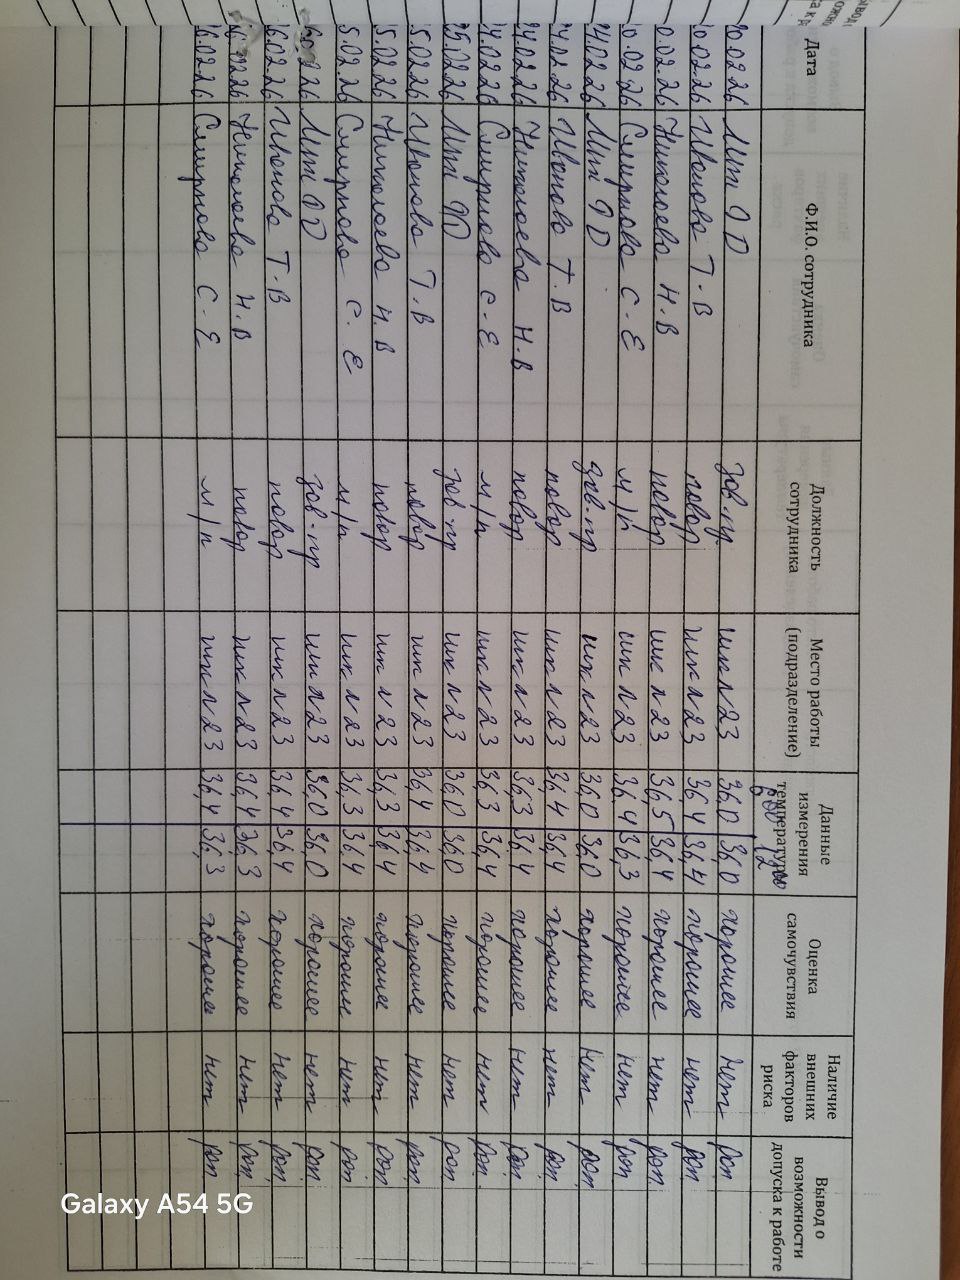 Дата Ф.И.О. сотрудника Должность сотрудника Место работы (подразделение) Данные измерения температуры Оценка самочувствия Наличие внешних факторов риска Вывод о возможности допуска к работе
0.02.26 О Д зав. пр. шк л 23 36,0 36,0 хорошее нет доп
0.02.26 Иванова Т. В повар шк л 23 36,4 36,4 хорошее нет доп
0.02.26 Николаева Н. В повар шк л 23 36,5 36,4 хорошее нет доп.
0.02.26 Смирнова С. Е м/р шк л 23 36,4 36,3 хорошее нет доп.
24.02.26 О Д зав. пр шк л 23 36,0 36,0 хорошее нет доп
24.02.26 Иванова Т. В повар шк л 23 36,4 36,4 хорошее нет доп.
24.02.26 Николаева Н. В повар шк л 23 36,3 36,4 хорошее нет доп.
24.02.26 Смирнова С. Е м/р шк л 23 36,3 36,4 хорошее нет доп.
25.02.26 О Д зав пр шк л 23 36,0 36,0 хорошее нет доп
5.02.26 Иванова Т. В повар шк л 23 36,4 36,4 хорошее нет доп.
5.02.26 Николаева Н. В повар шк л 23 36,3 36,4 хорошее нет доп.
5.02.26 Смирнова С. Е м/р шк л 23 36,3 36,4 хорошее нет доп.
О Д зав. пр шк л 23 36,0 36,0 хорошее нет доп.
6.02.26 Иванова Т. В повар шк л 23 36,4 36,4 хорошее нет доп.
Николаева Н. В повар шк л 23 36,4 36,3 хорошее нет доп.
6.02.26 Смирнова С. Е м/р шк л 23 36,4 36,3 хорошее нет доп.
Galaxy A54 5G